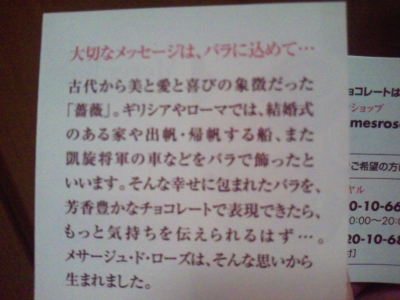 大切なメッセージは、バラに込めて…
古代から美と愛と喜びの象徴だった
「薔薇」。ギリシアやローマでは、結婚式
のある家や出帆・帰帆する船、また
凱旋将軍の車などをバラで飾ったと
いいます。そんな幸せに包まれたバラを、
芳香豊かなチョコレートで表現できたら、
もっと気持ちを伝えられるはず…。
メサージュ・ド・ローズは、そんな思いから
生まれました。
ョコレートは
ショップ
mesros
ご希望の方に
ヤル
0-10-66
0:00〜20:
20-10-68
付]